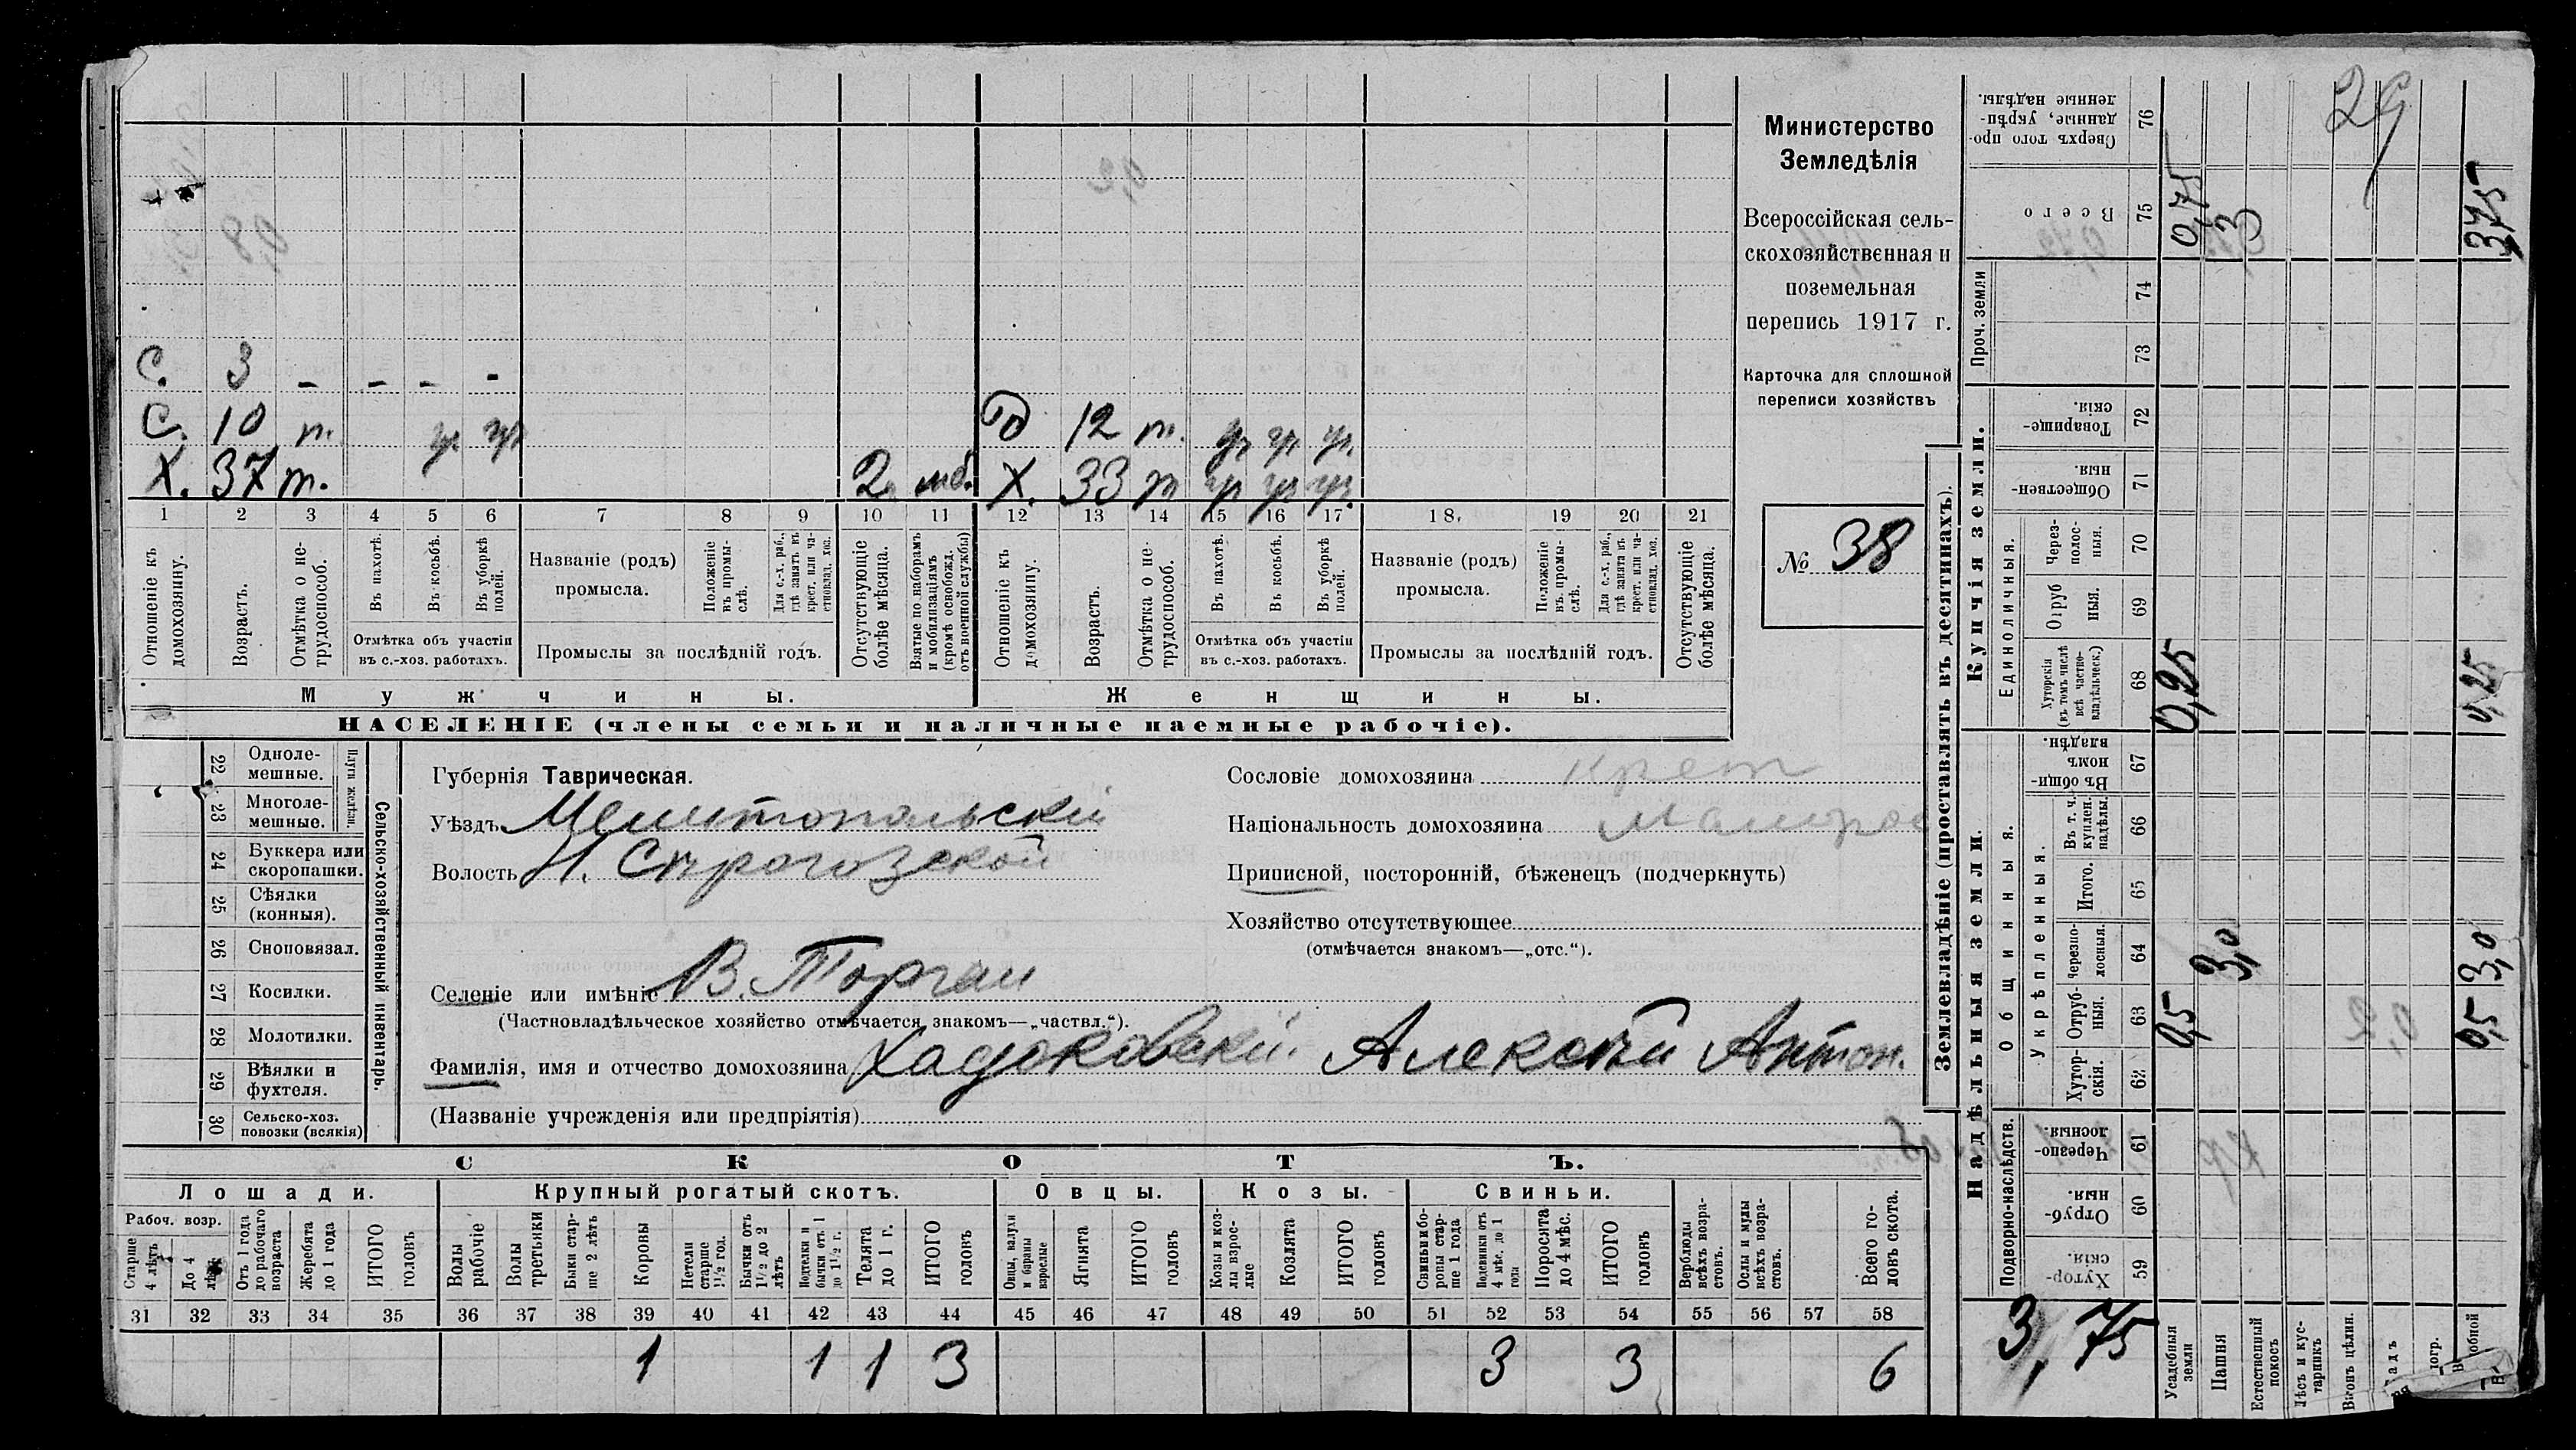 29
Министерство
Земледѣлія
Всероссійская сель-
скохозяйственная и
поземельная
перепись 1917 г.
Карточка для сплошной
переписи хозяйствъ
№ 38
С. 3 - - - -
С. 10 п.
12 п.
Х. 37 п. 2 мб. Х. 33 п
1 2 3 4 5 6 7 8 9 10 11 12 13 14 15 16 17 18. 19 20 21
Отношеніе къ домохозяину.
Возрастъ.
Отмѣтка о не-трудоспособ.
Въ пахотѣ.
Въ косьбѣ.
Въ уборкѣ полей.
Отмѣтка объ участіи
въ с.-хоз. работахъ.
Названіе (родъ)
промысла.
Положеніе въ промы-слѣ.
Для с.-х. раб., гдѣ занятъ въ крест. или ча-стновлад. хоз.
Промыслы за послѣдній годъ.
Отсутствующіе болѣе мѣсяца.
Взятые по наборамъ и мобилизаціямъ (кромѣ освобожд. отъ военной службы)
Отношеніе къ домохозяину.
Возрастъ.
Отмѣтка о не-трудоспособ.
Въ пахотѣ.
Въ косьбѣ.
Въ уборкѣ полей.
Отмѣтка объ участіи
въ с.-хоз. работахъ.
Названіе (родъ)
промысла.
Положеніе въ промы-слѣ.
Для с.-х. раб., гдѣ занята въ крест. или ча-стновлад. хоз.
Промыслы за послѣдній годъ.
Отсутствующіе болѣе мѣсяца.
Мужчины.
Женщины.
НАСЕЛЕНІЕ (члены семьи и наличные наемные рабочіе).
22 Одноле-мешные.
23 Многоле-мешные.
Плуги желѣзн.
24 Буккера или скоропашки.
25 Сѣялки (конныя).
26 Сноповязал.
27 Косилки.
28 Молотилки.
29 Вѣялки и фухтеля.
30 Сельско-хоз. повозки (всякія)
Сельско-хозяйственный инвентарь.
Губернія Таврическая.
Уѣздъ Мелитопольскій
Волость Н. Сѣрогозской
Селеніе или имѣніе В. Торгаи
(Частновладѣльческое хозяйство отмѣчается знакомъ—„частвл.“).
Фамилія, имя и отчество домохозяина Алексѣй Антон.
(Названіе учрежденія или предпріятія)
Сословіе домохозяина крест
Національность домохозяина Малорос
Приписной, посторонній, бѣженецъ (подчеркнуть)
Хозяйство отсутствующее
(отмѣчается знакомъ—„отс.“).
СКОТЪ.
Лошади.
Крупный рогатый скотъ.
Овцы.
Козы.
Свиньи.
Рабоч. возр.
Старше 4 лѣтъ
До 4 лѣтъ
Отъ 1 года до рабочаго возраста
Жеребята до 1 года
ИТОГО головъ
Волы рабочіе
Волы третьяки
Быки стар-ше 2 лѣтъ
Коровы
Нетели старше 1½ год.
Бычки отъ 1½ до 2 лѣтъ
Подтелки и бычки отъ 1 до 1½ г.
Телята до 1 г.
ИТОГО головъ
Овцы, валухи и бараны взрослые
Ягнята
ИТОГО головъ
Козы и коз-лы взрос-лые
Козлята
ИТОГО головъ
Свиньи и бо-ровы стар-ше 1 года
Подсвинки отъ 4 мѣс. до 1 года
Поросята до 4 мѣс.
ИТОГО головъ
Верблюды всѣхъ возра-стовъ.
Ослы и мулы всѣхъ возра-стовъ.
Всего го-ловъ скота.
31 32 33 34 35 36 37 38 39 40 41 42 43 44 45 46 47 48 49 50 51 52 53 54 55 56 57 58
1 1 1 3 3 3 6
Землевладѣніе (проставлять въ десятинахъ).
Надѣльныя земли.
Купчія земли.
Проч. земли
Подворно-наслѣдств.
Общинныя.
Укрѣпленныя.
Единоличныя.
59 Хутор-скія.
60 Отруб-ныя.
61 Черезпо-лосныя.
62 Хутор-скія.
63 Отруб-ныя.
64 Черезпо-лосныя.
65 Итого.
66 Въ т. ч. куплен. надѣлы.
67 Въ общи-номъ владѣн.
68 Хуторскія (въ томъ числѣ всѣ частно-владѣльческ.)
69 Отруб ныя.
70 Через-полос-ныя.
71 Обществен-ныя.
72 Товарище-скія.
73
74
75 Всего
76 Сверхъ того про-данные, укрѣп-ленные надѣлы.
3,75
Усадебныя земли 0,5 0,25 0,75
Пашня 3,0 3
Естественный покосъ
Лѣсъ и кус-тарникъ
Выгонъ цѣлин.
0,5 3,0 0,25 3,75